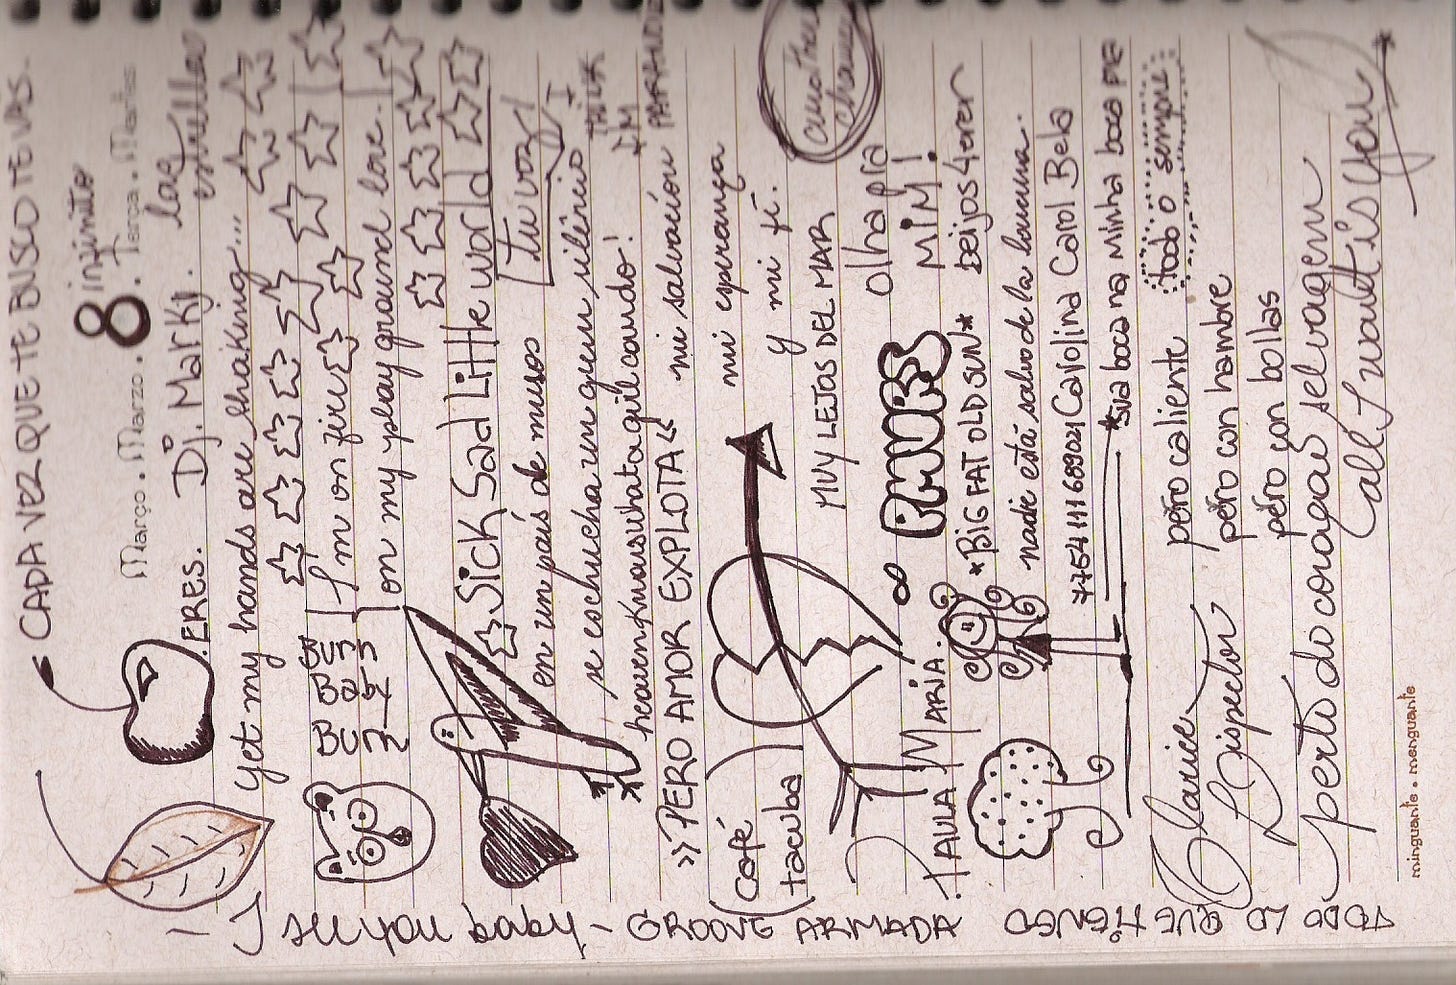 CADA VEZ QUE TE BUSCO TE VAS.
8 infinito
Março . Marzo . 8 . Terça . Martes
ERES. Dj. Marky. las estrellas
yet my hands are shaking...
I'm on fire
on my play ground love.
Burn
Baby
Burn
Sick Sad Little World
tu voz
en un país de musos
se eschucha un quem silêncio
I
THINK
I'M
PARANOID
>>PERO AMOR EXPLOTA<<
mi salvación
mi esperança
y mi fé.
(Café
tacuba)
MUY LEJOS DEL MAR
olha pra
MIM!
PAULA MARIA.
∞
*BIG FAT OLD SUN*
beijos 4ever
nadie está salvo de la
Carolina Carol Bela
*sua boca na minha boca
todo o sempre
Clarice
Lispector
pero caliente
pero con hambre
pero con bollas
perto do coração selvagem
all I want is you*
I see you baby - GROOVE ARMADA
TODO LO QUE TENGO
minguante . menguante